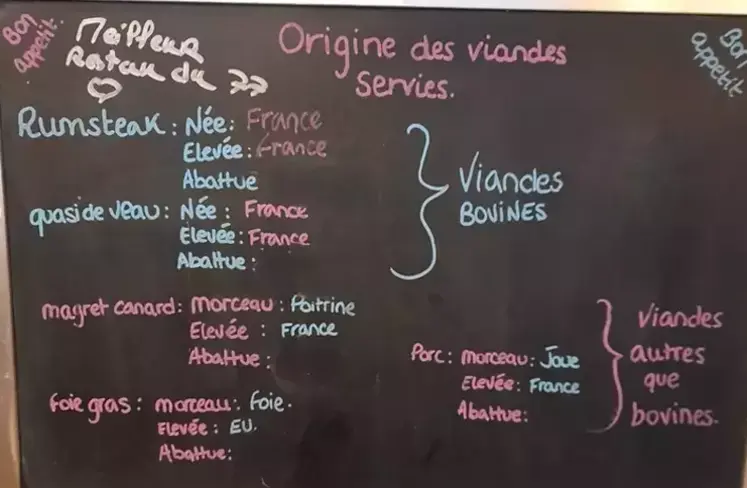 Bon
appetit.
Meilleur
Restau du 77
Origine des viandes
Servies.
Bon
appetit
Rumsteak : Née : France
Elevée : France
Abattue
quasi de veau : Née : France
Elevée : France
Abattue :
Viandes
BOVINES
magret canard : morceau : Poitrine
Elevée : France
Abattue :
foie gras : morceau : foie.
Elevée : EU.
Abattue :
Porc : morceau : Joue
Elevée : France
Abattue :
Viandes
autres
que
bovines.